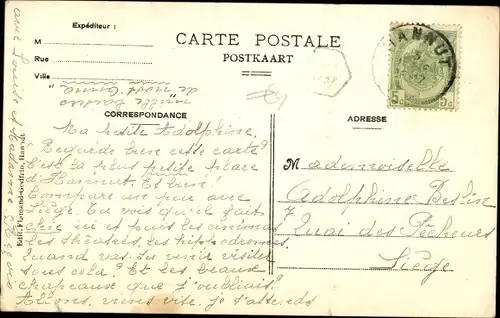 Expéditeur :
CARTE POSTALE
POSTKAART
M
Rue
Ville
HANNUT
mille baisers
de
CORRESPONDANCE
ADRESSE
Ma petite Adolphine,
Regarde bien cette carte?
C'est la plus petite place
d'Hannut. Et bien!
Compare un peu avec
Liège. Tu vois qu'il fait
chic ici et puis les animaux
les théâtres, les hippodromes.
Quand vas-tu venir visiter
sous cela? Et les beaux
chapeaux que j'oubliais?
Allons, viens vite, je t'attends
avec Louise et Madame
Mademoiselle
Adolphine Beslin
7 Quai des Pêcheurs
Liège
Edit. Flamand-Godfrin, Hannut
5c 5c